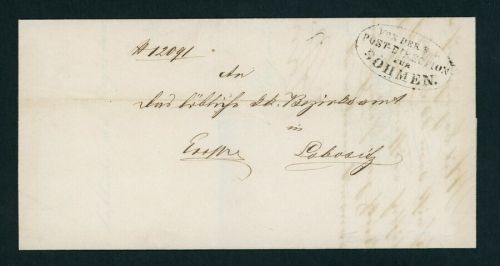 # 12091
VON DER K.
POST-DIRECTION
FÜR
BÖHMEN.
An
Das löbliche kk. Bezirksamt
in
Lobositz